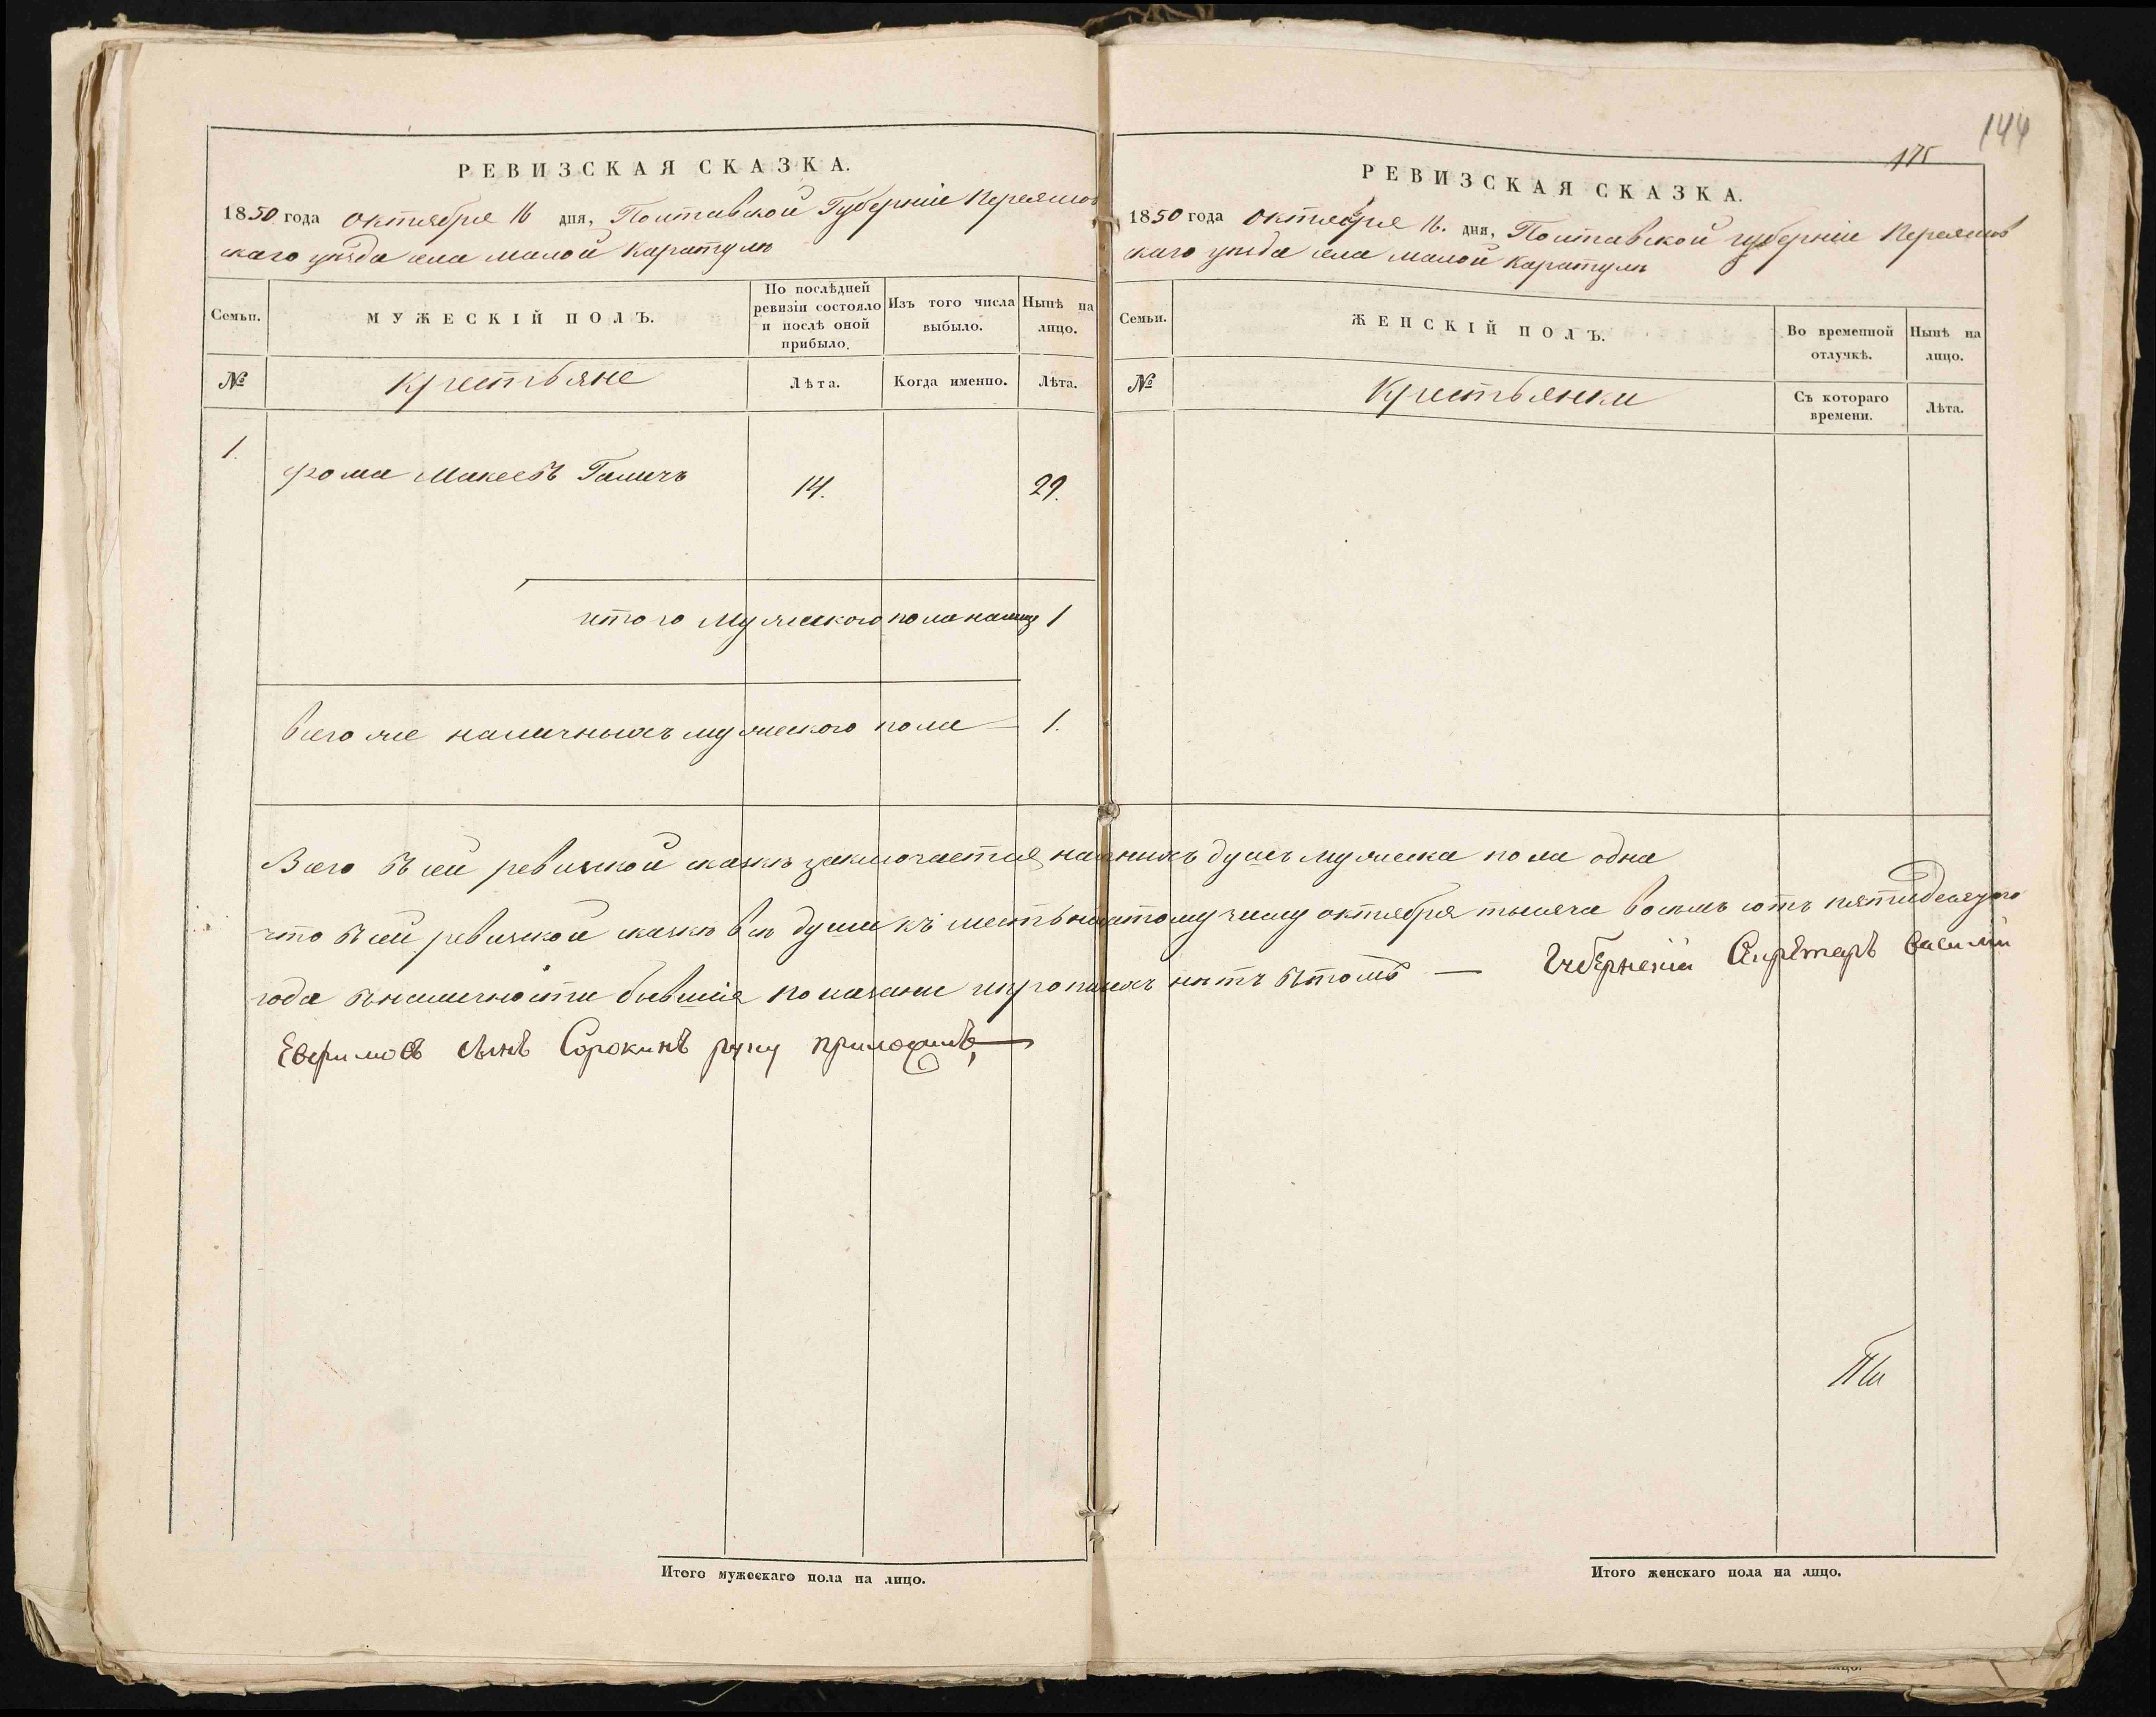 144
175
РЕВИЗСКАЯ СКАЗКА.
1850 года Октября 16 дня, Полтавской Губерніи Переяслов
скаго уѣзда села малой Каратули
Семьи.
МУЖЕСКІЙ ПОЛЪ.
По послѣдней
ревизіи состояло
и послѣ оной
прибыло.
Изъ того числа
выбыло.
Нынѣ на
лицо.
№
Крестьяне
Лѣта.
Когда именно.
Лѣта.
1.
Фома Макеевъ Галичъ
14.
29.
итого мужеского пола налицо 1
Всего же наличныхъ мужеского пола — 1.
РЕВИЗСКАЯ СКАЗКА.
1850 года Октября 16. дня, Полтавской губерніи Переяслов
скаго уѣзда села малой Каратули
Семьи.
ЖЕНСКІЙ ПОЛЪ.
Во временной
отлучкѣ.
Нынѣ на
лицо.
№
Крестьянки
Съ котораго
времени.
Лѣта.
Всего въ сей ревизской сказкѣ заключается душъ мужеска пола одна
что въ сей ревизской сказкѣ всѣ души къ шестьнадтому числу октября тысяча восемь сотъ пятидесятого
года въ наличности бывшія показани и прописныхъ нѣтъ втомъ — Губернскій Секретарь Василій
Евфимовъ сынъ Сорокинъ руку приложилъ —
Итого мужескаго пола на лицо.
Итого женскаго пола на лицо.